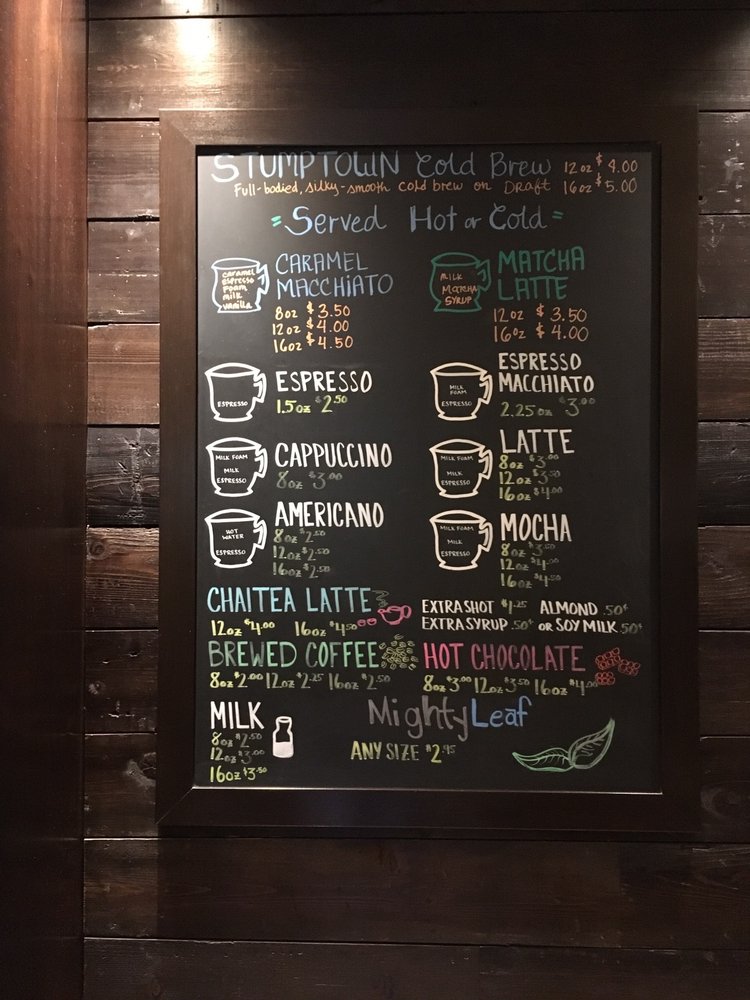 STUMPTOWN Cold Brew 12oz $4.00
Full-bodied, silky-smooth cold brew on Draft 16oz $5.00
= Served Hot or Cold =
caramel
espresso
foam
milk
vanilla
CARAMEL
MACCHIATO
8oz $3.50
12oz $4.00
16oz $4.50
MILK
MATCHA
SYRUP
MATCHA
LATTE
12oz $3.50
16oz $4.00
ESPRESSO
ESPRESSO
1.5oz $2.50
MILK
FOAM
ESPRESSO
ESPRESSO
MACCHIATO
2.25oz $3.00
MILK FOAM
MILK
ESPRESSO
CAPPUCCINO
8oz $3.00
MILK FOAM
MILK
ESPRESSO
LATTE
8oz $3.00
12oz $3.50
16oz $4.00
HOT
WATER
ESPRESSO
AMERICANO
8oz $2.00
12oz $2.50
16oz $2.50
MILK FOAM
MILK
ESPRESSO
MOCHA
8oz $3.50
12oz $4.00
16oz $4.50
CHAITEA LATTE
12oz $4.00 16oz $4.50
EXTRA SHOT $1.25 ALMOND .50¢
EXTRA SYRUP .50¢ OR SOY MILK .50¢
BREWED COFFEE
8oz $2.00 12oz $2.25 16oz $2.50
HOT CHOCOLATE
8oz $3.00 12oz $3.50 16oz $4.00
MILK
8oz $2.50
12oz $3.00
16oz $3.50
Mighty Leaf
ANY SIZE $2.95